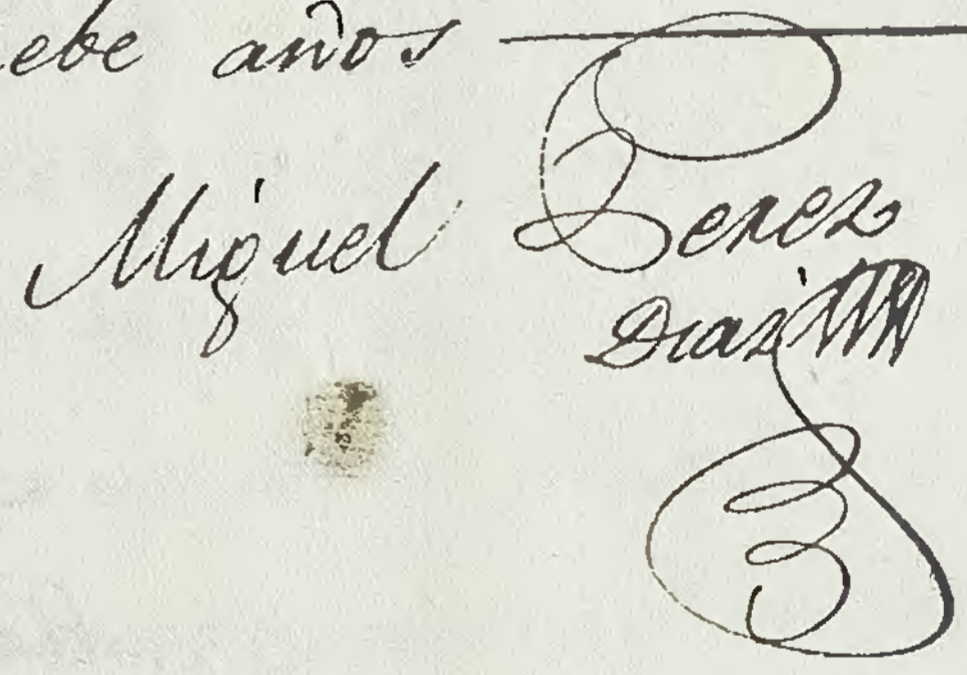 ebe años
Miguel Perez
Diaz